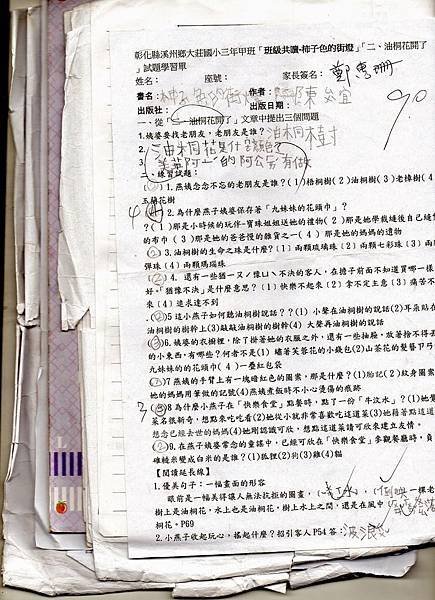 彰化縣溪州鄉大莊國小三年甲班「班級共讀-柿子色的街燈」「二、油桐花開了
」試題學習單
姓名： 座號： 家長簽名：鄭惠珊
90
書名：柿子色的街燈 作者：陳
出版社： 出版日期：
一、從「一油桐花開了」文章中提出三個問題
1.姨婆要找老朋友，老朋友是誰？油桐樹
2.油桐花是什麼顏色？
3.
二、練習試題：
(2)1.燕姨念念不忘的老朋友是誰？(1)梧桐樹(2)油桐樹(3)老樟樹(4)
五葉花樹
4 2.為什麼燕子姨婆保存著「九妹妹的花頭巾」？
？(1)那是小時候的玩伴-寶珠姐姐送她的禮物(2)那是她學裁縫後自己縫
的布巾(3)那是她的爸爸慢的雜貨之一(4)那是她的媽媽的遺物
(2)3.油桐樹的生命之珠是什麼？(1)兩顆琉璃珠(2)兩顆七彩珠(3)兩
彈珠(4)兩顆瑪瑙珠
(2)4.還有一些猶ㄧㄡˊ豫ㄩˋ不決的客人，在攤子前面不知道買哪一樣
好。「猶豫不決」是什麼意思？(1)快樂不起來(2)拿不定主意(3)痛苦不
來(4)追求達不到
(2)5這小燕子如何聽油桐樹說話？？(1)小聲在油桐樹的說話(2)耳朵貼在
油桐樹的樹幹上(3)敲敲油桐樹的樹幹(4)大聲再油桐樹的說話
(3)6.姨婆的衣櫥裡，除了掛著她的衣服之外，還有一些抽屜，放著捨不得丟
的小東西，有哪些？何者不是(1)繡著芙蓉花的小錢包(2)山茶花的髮簪ㄗㄢ
九妹妹的的花頭巾(4)一疊紅包袋
(3)7燕姨的手臂上有一塊暗紅色的圖案，那是什麼？(1)胎記(2)紋身圖案
她的媽媽用筆做的記號(4)燕姨煮飯時不小心燙傷的痕跡
3 8為什麼小燕子在「快樂食堂」點餐時，點了一份「牛汶水」？(1)她覺
菜名很新奇，想點來吃吃看(2)她從小就非常喜歡吃這道菜(3)她藉著點這道
想念已經去世的媽媽(4)她用認識可欣，想點這道菜請可欣來建立友情。
(2)9.在燕子姨婆常念的童謠中，已經可欣在「快樂食堂」參觀餐廳時，負
碓糙米變成白米的是誰？(1)狐狸(2)狗(3)雞(4)貓
【閱讀延長線】
1.優美句子：一幅畫面的形容
眼前是一幅美得讓人無法抗拒的圖畫，(清水)，(倒映)一棵老
樹上是油桐花，水上也是油桐花，樹上水上之間，還是在風中
桐花。P69
2.小燕子收起玩心，搖起什麼？招引客人P54答：波浪鼓